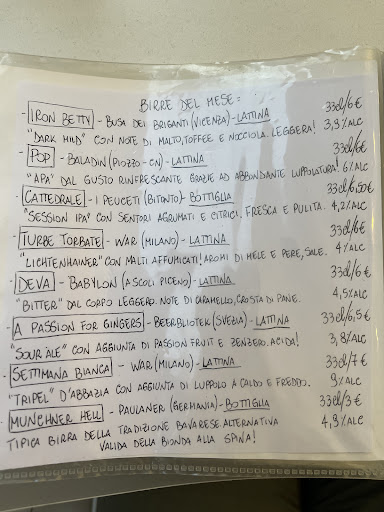 BIRRE DEL MESE:
- IRON BETTY - BUSA DEI BRIGANTI (VICENZA) - LATTINA 33cl/6€
"DARK MILD" CON NOTE DI MALTO, TOFFEE E NOCCIOLA. LEGGERA! 3,3%ALC
- POP - BALADIN (PIOZZO - CN) - LATTINA 33cl/6€
"APA" DAL GUSTO RINFRESCANTE GRAZIE AD ABBONDANTE LUPPOLATURA! 6%ALC
- CATTEDRALE - I PEUCETI (BITONTO) - BOTTIGLIA 33cl/6,50€
"SESSION IPA" CON SENTORI AGRUMATI E CITRICI. FRESCA E PULITA. 4,2%ALC
- TURBE TORBATE - WAR (MILANO) - LATTINA 33cl/6€
"LICHTENHAINER" CON MALTI AFFUMICATI! AROMI DI MELE E PERE, SALE. 4%ALC
- DEVA - BABYLON (ASCOLI PICENO) - LATTINA 33cl/6€
"BITTER" DAL CORPO LEGGERO. NOTE DI CARAMELLO, CROSTA DI PANE. 4,5%ALC
- A PASSION FOR GINGERS - BEERBLIOTEK (SVEZIA) - LATTINA 33cl/6,5€
"SOUR ALE" CON AGGIUNTA DI PASSION FRUIT E ZENZERO. ACIDA! 3,8%ALC
- SETTIMANA BIANCA - WAR (MILANO) - LATTINA 33cl/7€
"TRIPEL" D'ABBAZIA CON AGGIUNTA DI LUPPOLO A CALDO E FREDDO. 9%ALC
- MUNCHNER HELL - PAULANER (GERMANIA) - BOTTIGLIA 33cl/3€
TIPICA BIRRA DELLA TRADIZIONE BAVARESE. ALTERNATIVA 4,9%ALC
VALIDA DELLA BIONDA ALLA SPINA!